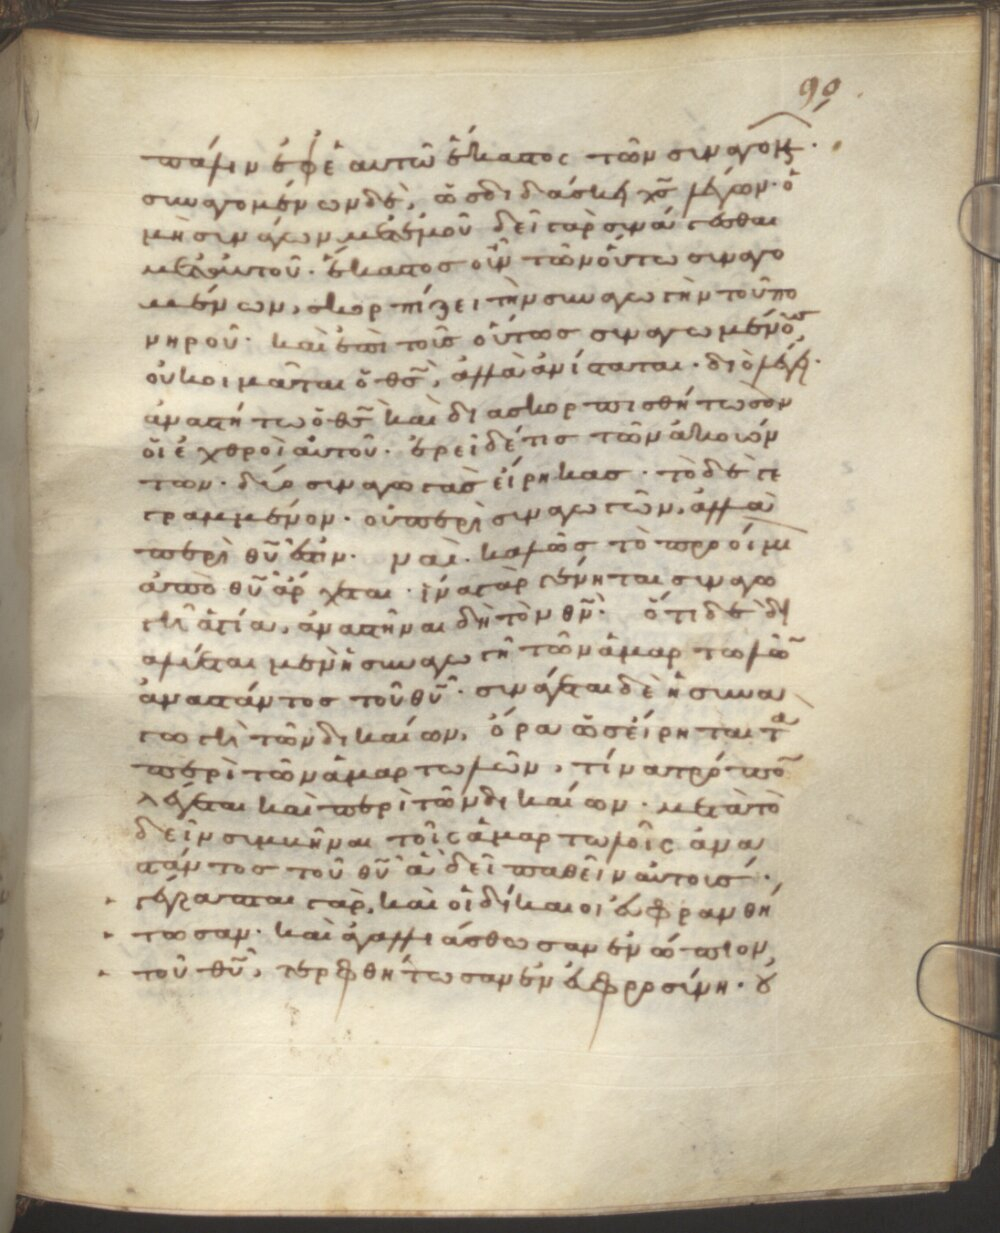 99
πάλιν ἐφ' ἑαυτῶ ἕκαστος τῶν συναγομ
συναγομένων δὲ, ὡς διδάσκει χς λέγων· ὁ
μὴ συνάγων μετ' ἐμοῦ δεῖ γὰρ συνάγεσθαι
μετ' αὐτοῦ. ἕκαστος οὖν τῶν οὕτω συναγο
μένων, σκορπίζει τὴν συναγωγὴν τοῦ πο
νηροῦ· καὶ ἐπὶ τοῖς οὕτως συναγωμένοις
οὐ κοιμᾶται ὁ θς, ἀλλὰ ἀνίσταται. διὸ λέγει·
ἀναστήτω ὁ θς καὶ διασκορπισθήτωσαν
οἱ ἐχθροὶ αὐτοῦ. ἐρεῖ δέ τις τῶν ἀκουόν
των· δύο συναγωγὰς εἴρηκας· τὸ δὲ γε
γραμμένον· οὐ περὶ συναγωγῶν, ἀλλὰ
περὶ θυ ἐστιν. ναὶ. καλῶς τὸ προοίμι
ἀπὸ θυ ἄρχεται· ἵνα γὰρ γένηται συναγω
γὴ ἁγία, ἀναστῆναι δεῖ τὸν θν. ὅτι δὲ δι
αλύεται μὲν ἡ συναγωγὴ τῶν ἁμαρτωλῶ
ἀναστάντος τοῦ θυ· συνάγεται δὲ ἡ συνα
γωγὴ τῶν δικαίων, ὅρα ὡς εἴρηται τα
περὶ τῶν ἁμαρτωλῶν, τίνα τρόπο
λέγεται καὶ περὶ τῶν δικαίων. μετὰ τὸ
δεῖν συμβῆναι τοῖς ἁμαρτωλοῖς ἀνα
στάντος τοῦ θυ ἃ δεῖ παθεῖν αὐτούς·
γέγραπται γὰρ, καὶ οἱ δίκαιοι εὐφρανθή
τωσαν· καὶ ἀγαλλιάσθωσαν ἐνώπιον
τοῦ θυ, τερφθήτωσαν ἐν εὐφροσύνη. οὐ